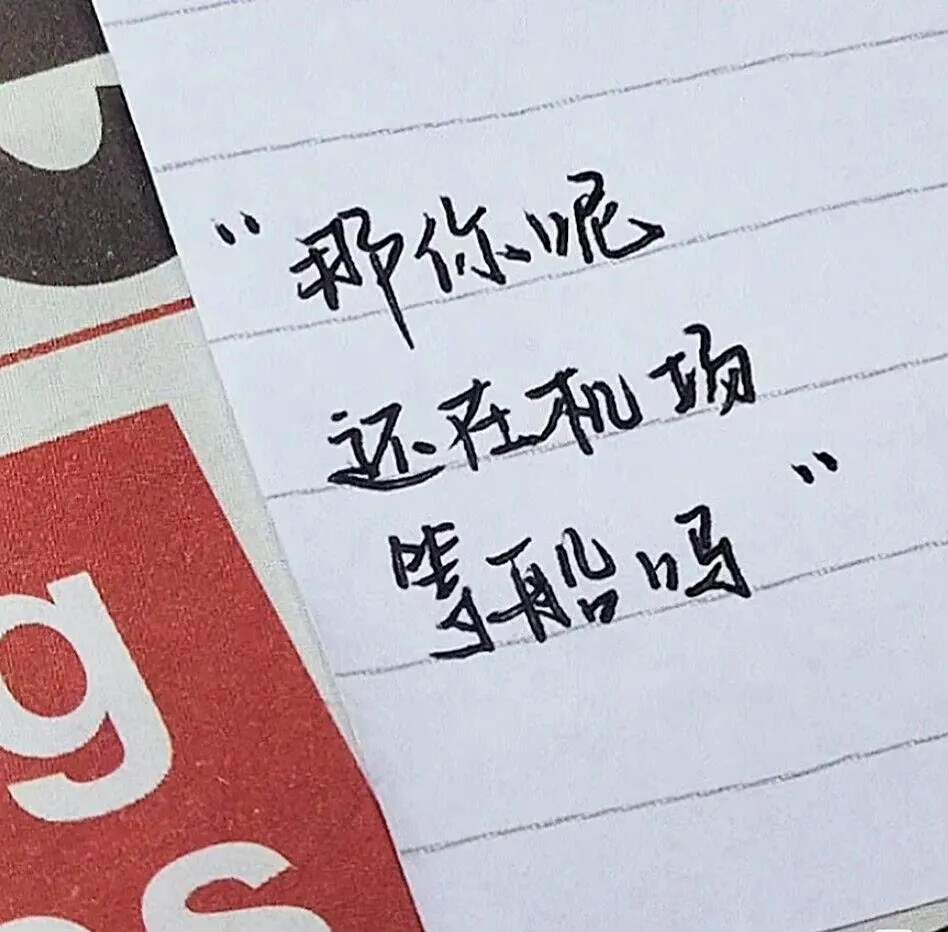 “那你呢
还在机场
等船吗”
g
s